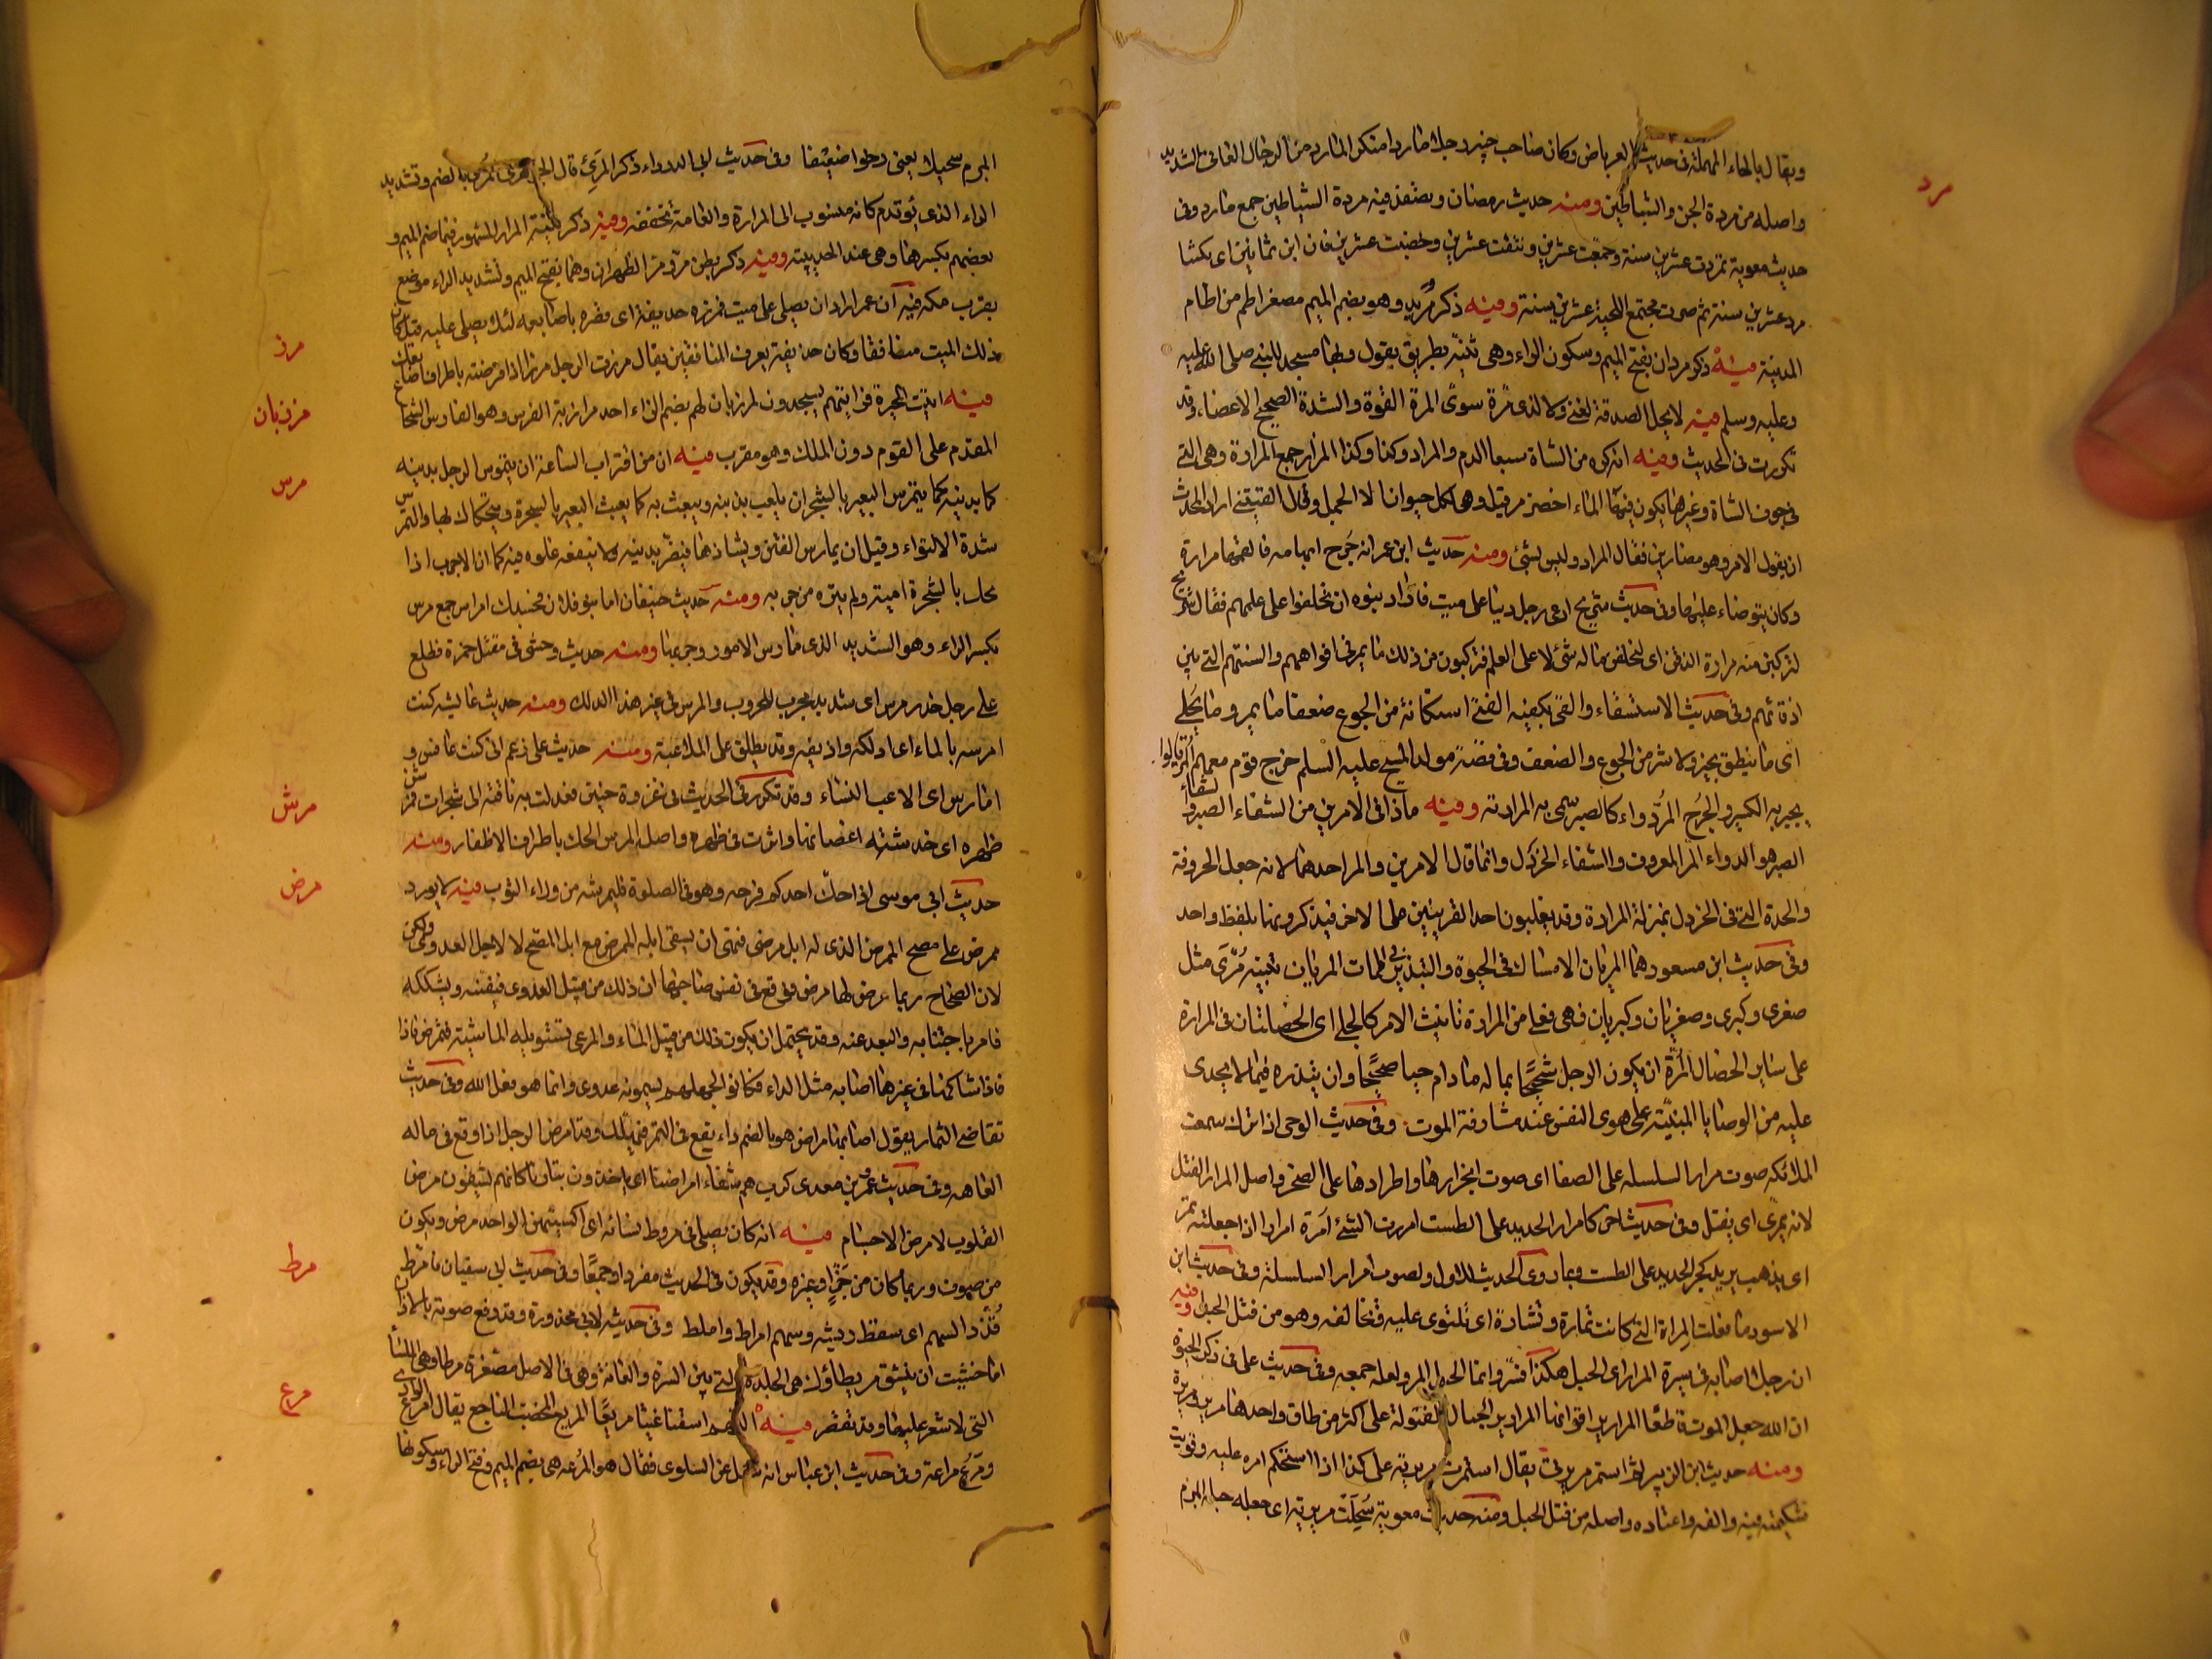 مرد
ويقال بالحاء المهملة فى حديث العرباض وكان صاحب خيبر رجلا ماردا منكرا المارد من الرجال العاتى الشديد
واصله من مردة الجن والشياطين ومنه حديث رمضان وتصفد فيه مردة الشياطين جمع مارد وفى
حديث معوية تمردت عشرين سنة وجمعت عشرين ونتفت عشرين وخضبت عشرين فان ابن ثمانين اى مكثت
مرد عشرين سنة ثم صرت مجتمع اللحية عشرين سنة وفيه ذكر مريد وهو بضم الميم مصغر اطم من اطام
المدينة فيه ذكر مردان بفتح الميم وسكون الراء وهى ثنية بطريق تبوك وبها مسجد للنبى صلى الله عليه
وعليه وسلم فيه لا يحل الصدقة لغنى ولا لذى مرة سوى المرة القوة والشدة الصحيح الاعضاء وقد
تكررت فى الحديث وفيه انه كره من الشاة سبعا الدم والمرار وكذا وكذا المرار جمع المرارة وهى التى
فى جوف الشاة وغيرها يكون فيها الماء اخضر مر قيل وهى لكل حيوان الا الجمل وقال القتيبى اراد المحدث
ان يقول الامر وهو مصارين فقال المرار وليس بشئ ومنه حديث ابن عمر انه جرح ابهامه فالقمها مرارة
وكان يتوضاء عليها وفى حديث شريح ادعى رجل دينا على ميت فاراد بنوه ان يحلفوا على علمهم فقال شريح
لتركبن منه مرارة الذقن اى لتحلفن ماله شئ لا على العلم فتركبون من ذلك ما يمر فى افواههم والسنتهم التى بين
اذقانهم وفى حديث الاستسقاء والقى بكفيه الفتى استكانة من الجوع ضعفا ما يمر وما يحلى
اى ما ينطق بخير ولا شر من الجوع والضعف وفى قصة مولد المسيح عليه السلم خرج قوم معهم المر قالوا
يجبر به الكسير والجرح المر دواء كالصبر سمى به لمرارته وفيه ماذا فى الامرين من الشفاء الصبر والثفاء
الصبر هو الدواء المر المعروف والثفاء الخردل وانما قال الامرين والمر احدهما لانه جعل الحروفة
والحدة التى فى الخردل بمنزلة المرارة وقد يغلبون احد القرينين على الاخر فيذكرونهما بلفظ واحد
وفى حديث ابن مسعود هما المريان الامساك فى الحيوة والتبذير فى الممات المريان تثنية مرى مثل
صغرى وكبرى وصغريان وكبريان فهى فعلى من المرارة تانيث الامر كالجلى اى الخصلتان فى المرارة
على سائر الخصال المرة ان يكون الرجل شحيحا بماله مادام حيا صحيحا وان يبذره فيما لا يجدى
عليه من الوصايا المبنية على هوى النفس عند مشارفة الموت وفى حديث الوحى اذا نزل سمعت
الملائكة صوت مرار السلسله على الصفا اى صوت انجرارها واطرادها على الصخر واصل المرار الفتل
لانه يمر اى يفتل وفى حديث اخر كامرار الحديد على الطست امررت الشئ امره امرارا اذا جعلته يمر
اى يذهب يريد كجر الحديد على الطست وربما روى الحديث الاول وصوت امرار السلسلة وفى حديث ابى
الاسود ما فعلت المراة التى كانت تماره وتشاره اى تلتوى عليه وتخالفه وهو من فتل الحبل وفيه
ان رجلا اصابه فى سيره المرار اى الحبل هكذا فسر وانما الحبل المر ولعله جمعه وفى حديث على فى ذكر الحيوة
ان الله جعل الموت قاطعا لمراير اقرانها المراير الحبال المفتولة على اكثر من طاق واحدها مرير ومريرة
ومنه حديث ابن الزبير ثم استمرت مريرتى يقال استمرت مريرته على كذا اذا استحكم امره عليه وقويت
شكيمته فيه والفه واعتاده واصله من فتل الحبل ومنه حديث معوية سحلت مريرته اى جعل حبله المبرم
المبرم سحيلا يعنى رخوا ضعيفا وفى حديث ابى الدرداء ذكر المرى قال الجوهرى المرى بالضم وتشديد
الراء الذى يؤتدم كانه منسوب الى المرارة والعامة تخففه وفيه ذكر ثنية المرار المشهور فيها ضم الميم و
بعضهم بكسرها وهى عند الحديبية وفيه ذكر بطن مر ومر الظهران وهما بفتح الميم وتشديد الراء موضع
بقرب مكه فيه ان عمر اراد ان يصلى على ميت فمرزه حذيفة اى قرصه باصابعه لئلا يصلى عليه قيل كان
مرز
ذلك الميت منافقا وكان حذيفة يعرف المنافقين يقال مرزت الرجل مرزا اذا قرصته باطراف اصابعك
مرزبان
فيه اتيت الحيرة فراتهم يسجدون لمرزبان لهم بضم الزاء احد مرازبة الفرس وهو الفارس الشجاع
المقدم على القوم دون الملك وهو معرب فيه ان من اقتراب الساعة ان يتمرس الرجل بدينه
مرس
كما يتمرس البعير بالشجر ان يلعب بدينه ويعبث به كما يعبث البعير بالشجرة ويتحكك بها والتمرس
شدة الالتواء وقيل ان يمارس الفتن ويشادها فيضر بدينه ولا ينفعه غلوه فيه كما ان الاجرب اذا
تحكك بالشجرة ادمته ولم تبره من جربه ومنه حديث خيفان اما بنو فلان فحسك امراس جمع مرس
بكسر الراء وهو الشديد الذى مارس الامور وجربها ومنه حديث وحشى فى مقتل حمزة فطلع
على رجل حذر مرس اى شديد مجرب للحروب والمرس فى غير هذا الدلك ومنه حديث عايشه كنت
امرسه بالماء اى ادلكه واذيفه وقد يطلق على الملاعبة ومنه حديث على زعم انى كنت اعافس و
امارس اى الاعب النساء وقد تكرر فى الحديث فى غزوة حنين فعدلت به ناقته الى شجرات فمرشن
مرش
ظهره اى خدشته اغصانها واثرت فى ظهره واصل المرش الحك باطراف الاظفار ومنه
حديث ابى موسى اذا حك احدكم فرجه وهو فى الصلوة فليمرشه من وراء الثوب فيه لا يورد
مرض
ممرض على مصح الممرض الذى له ابل مرضى فنهى ان يسقى ابله الممرض مع ابل المصح لا لاجل العدوى ولكن
لان الصحاح ربما عرض لها مرض فوقع فى نفس صاحبها ان ذلك من قبيل العدوى فيفتنه ويشككه
فامر باجتنابه والبعد عنه وقد يحتمل ان يكون ذلك من قبل الماء والمرعى تستوبله الماشية فتمرض فاذا
فاذا شاركها فى غيرها اصابه مثل الداء فكانوا لجهلهم يسمونه عدوى وانما هو فعل الله وفى حديث
تقاضى الثمار يقول اصابها مراض هو بالضم داء يقع فى الثمرة فتهلك وقد امرض الرجل اذا وقع فى ماله
العاهه وفى حديث عمرو بن معدى كرب هم شفاء امراضنا اى ياخذون بثارنا كانهم يشفون مرض
القلوب لا مرض الاجسام فيه انه كان يصلى فى مروط نسائه اى اكسيتهن الواحد مرط ويكون
مرط
من صوف وربما كان من خز او غيره وقد يكون فى الحديث مفردا وجمعا وفى حديث ابى سفيان فامرط
قذذ السهم اى سقط ريشه وسهم امراط واملط وفى حديث لابى محذورة وقد رفع صوته بالاذان
اما خشيت ان ينشق مريطاؤك هى الجلدة التى بين السرة والعانة وهى فى الاصل مصغرة مرطا وهى الملساء
مرع
التى لا شعر عليها وقد تقصر فيه اللهم اسقنا غيثا مريعا المريع المخصب الناجع يقال امرع الوادى
ومرع مراعة وفى حديث ابن عباس انه سئل عن السلوى فقال هو المرعه هى بضم الميم وفتح الراء وسكونها